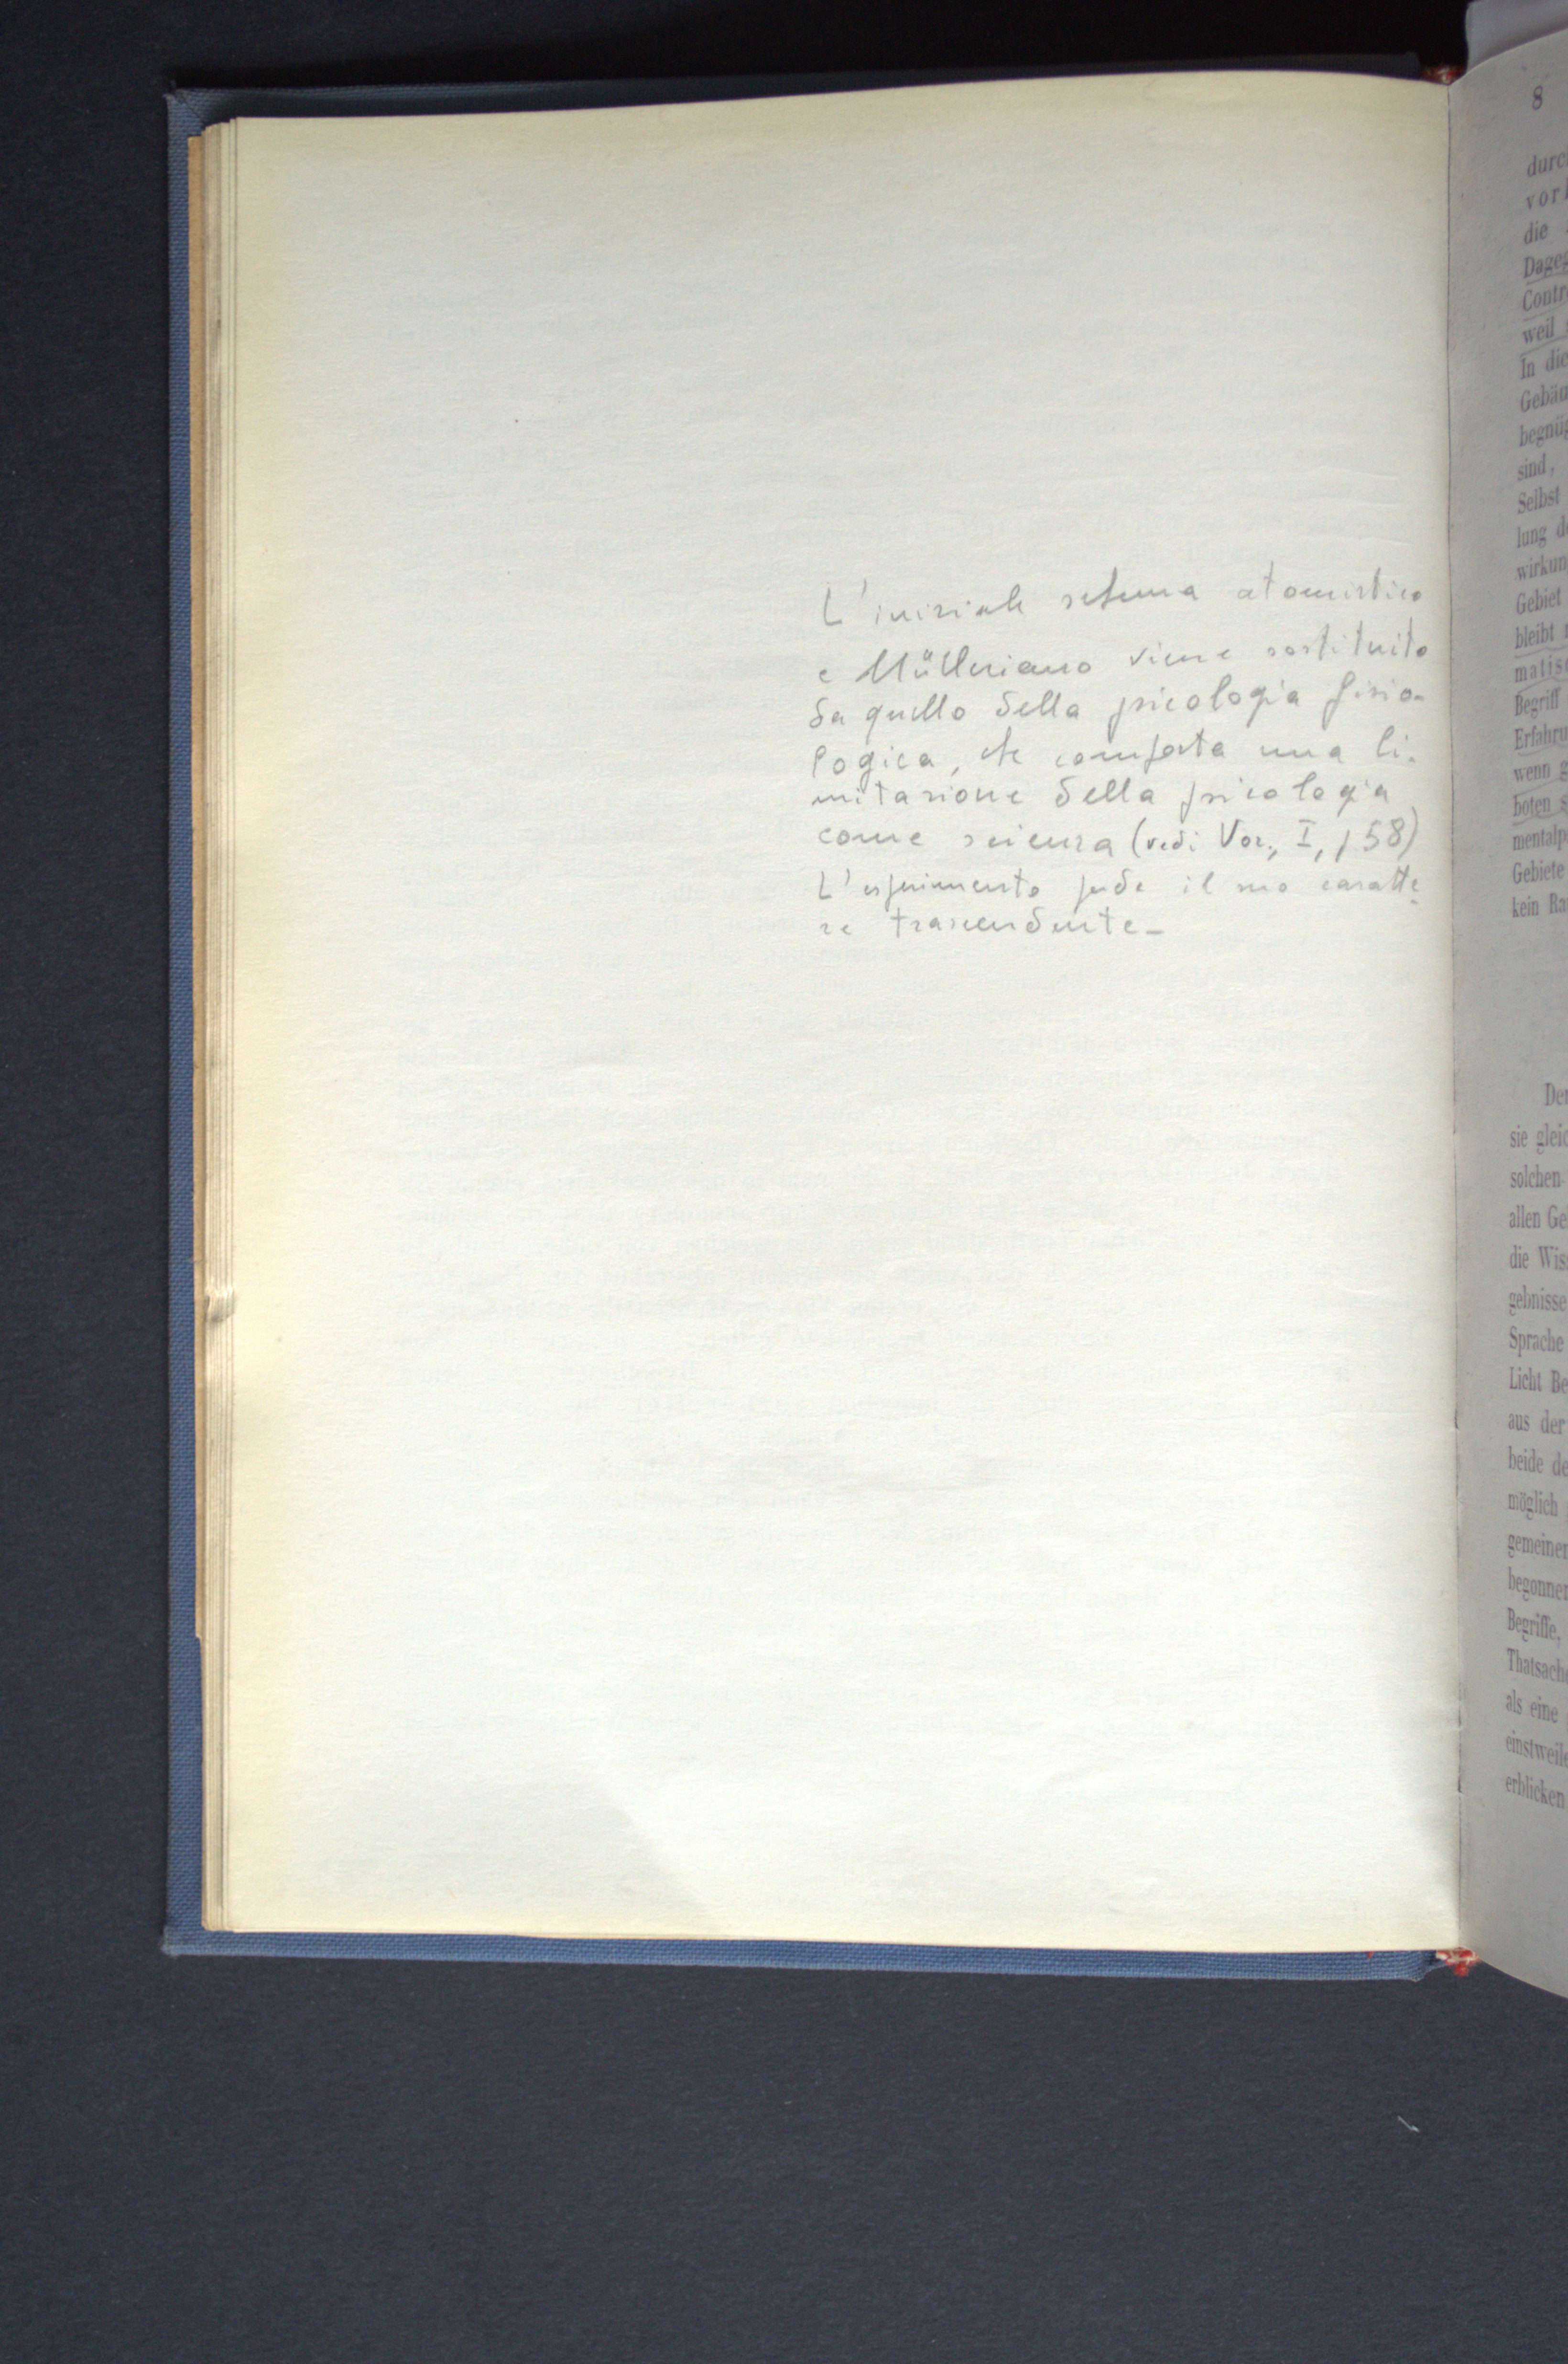 L'iniziale schema atomistico
e Mülleriano viene sostituito
da quello della psicologia fisio-
logica, che comporta una li-
mitazione della psicologia
come scienza (vedi Vor., I, p 58)
L'esperimento perde il suo caratte-
re trascendente -
8
durch
vor
die
Dageg
Contr
weil
In die
Gebäu
begnüg
sind,
Selbst
lung de
wirkun
Gebiet
bleibt
matis
Begriff
Erfahru
wenn g
boten s
mentalp
Gebiete
kein Ra
Der
sie gleic
solchen
allen Ge
die Wiss
gebnisse
Sprache
Licht Be
aus der
beide de
möglich
gemeinen
begonnen
Begriffe,
Thatsach
als eine
einstweile
erblicken